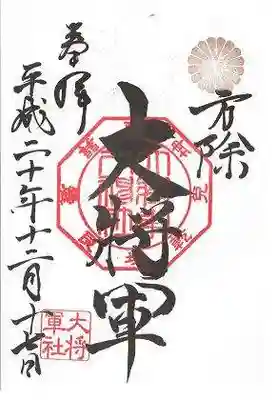 方除
大将軍
奉拝
平成二十年十二月十七日
大将
軍社